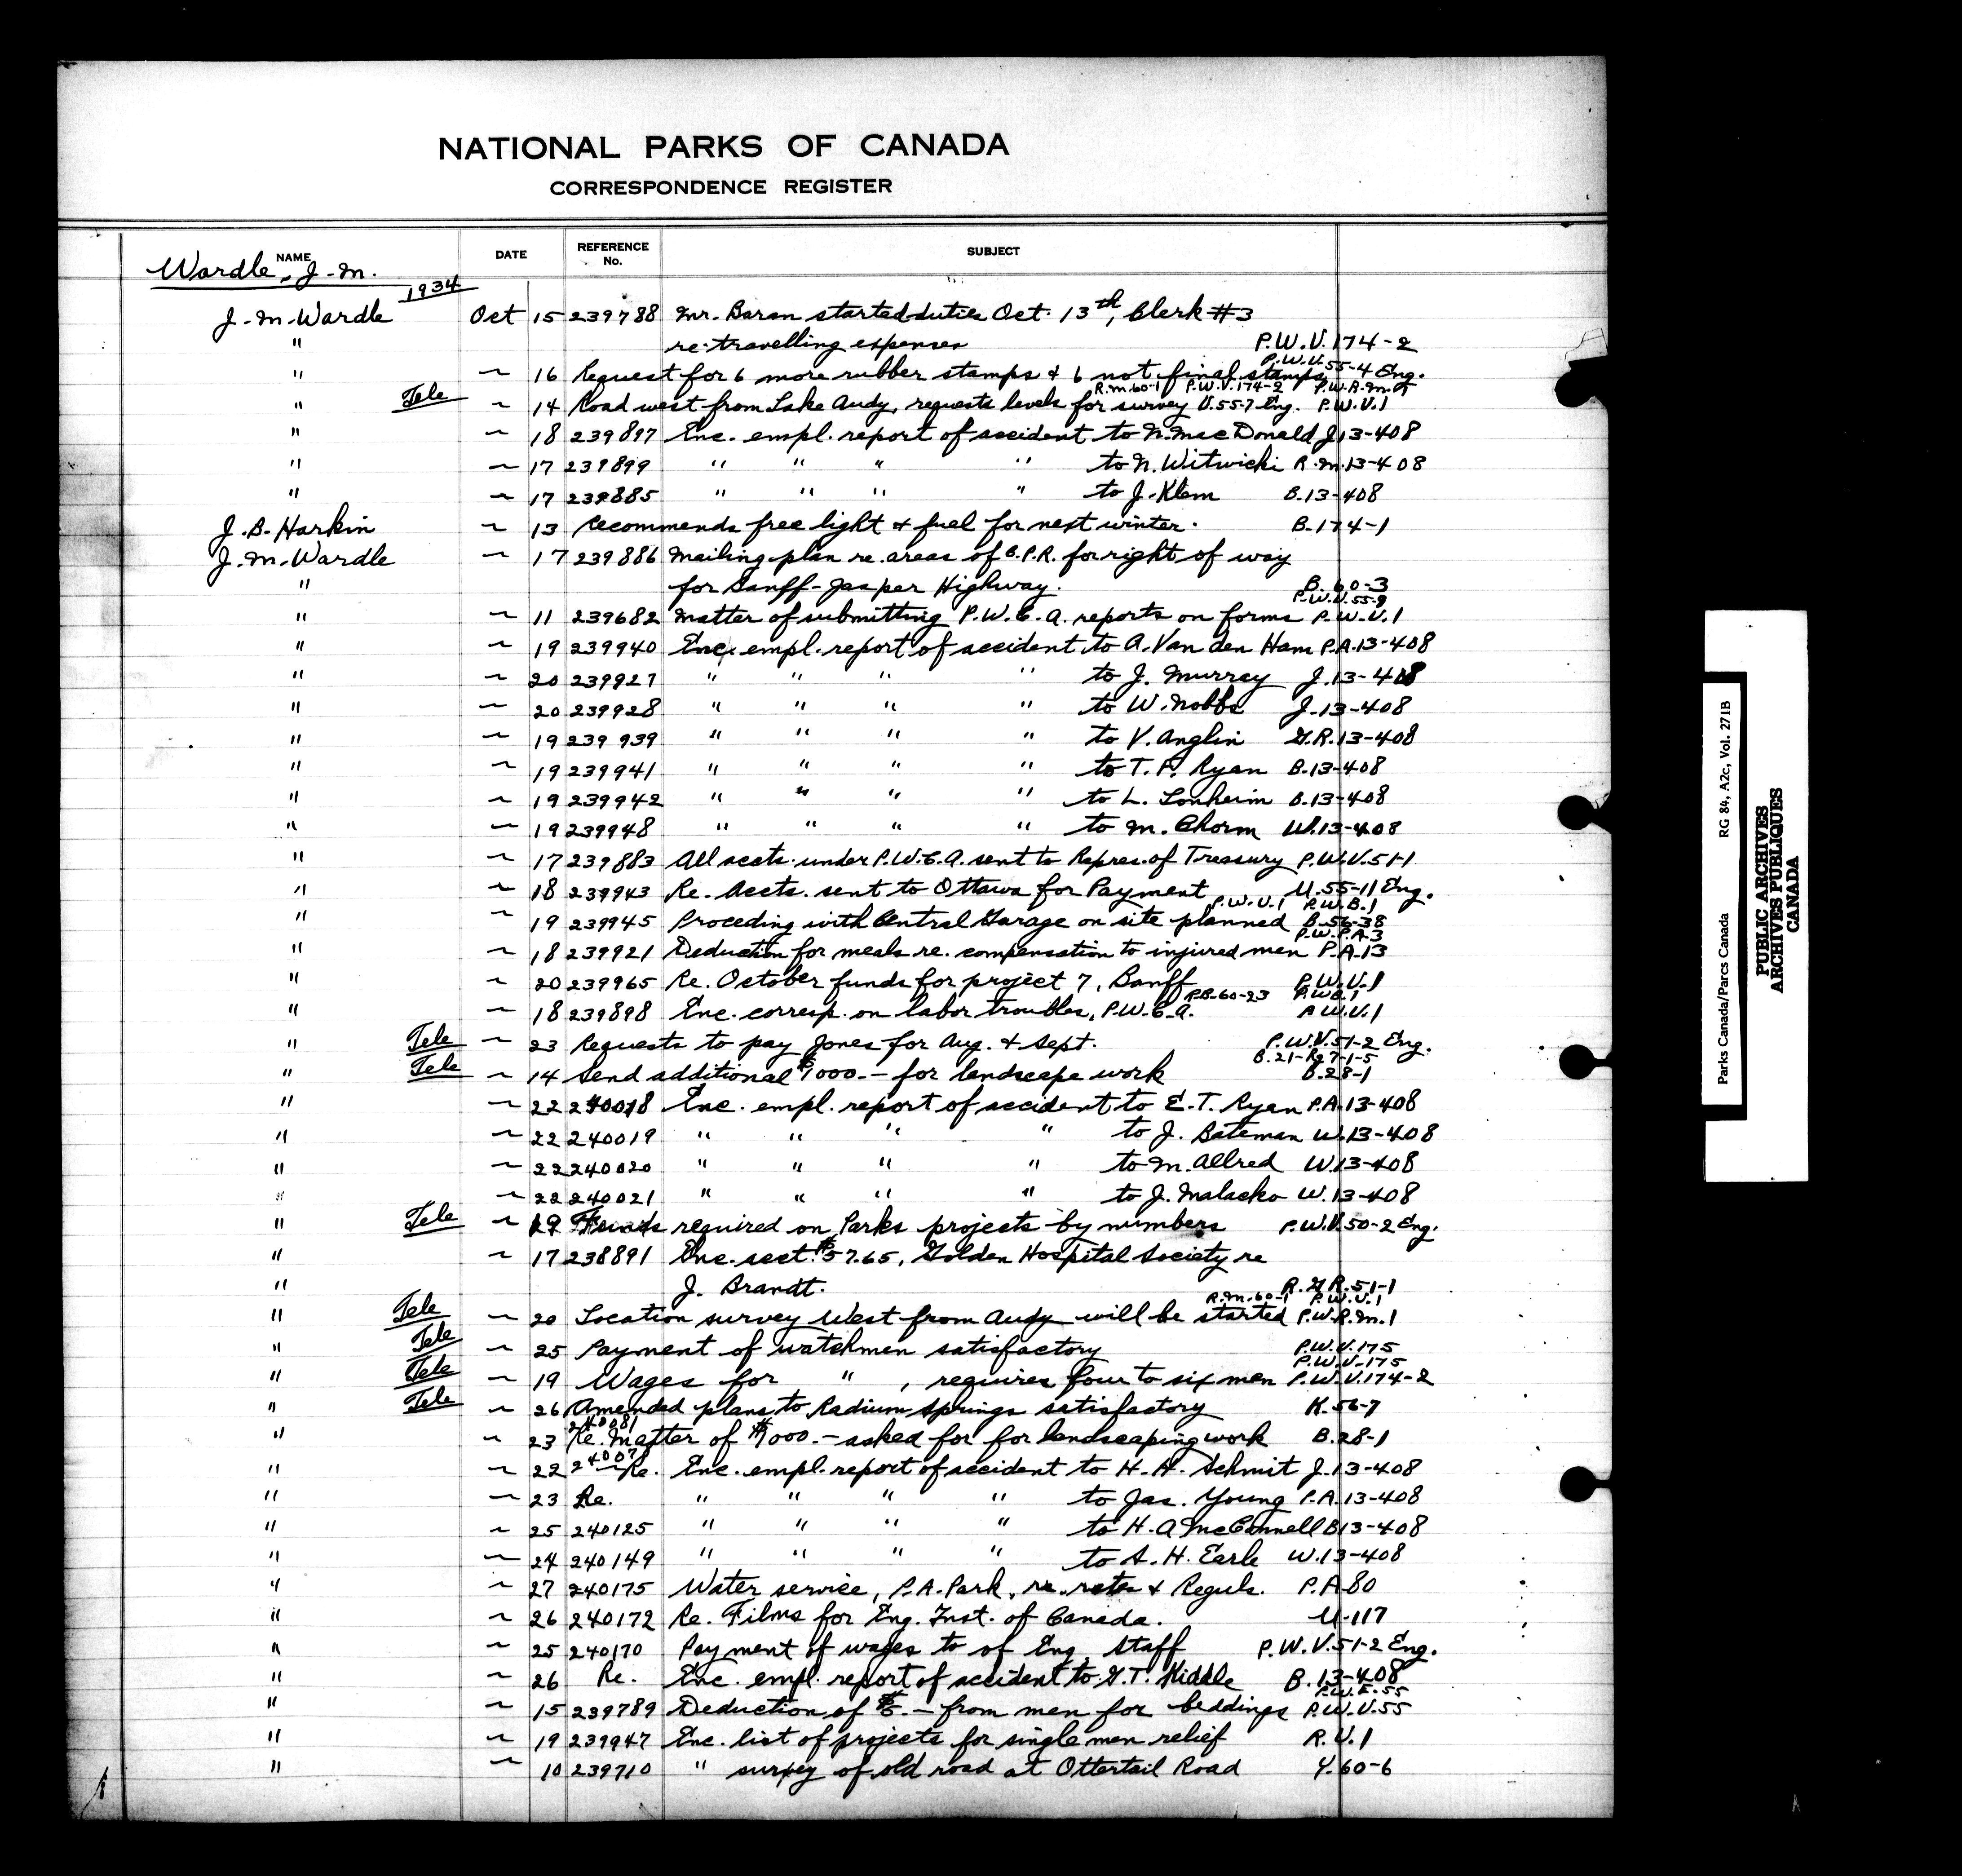 NATIONAL PARKS OF CANADA
CORRESPONDENCE REGISTER
NAME DATE REFERENCE No. SUBJECT
Wardle, J.M.
1934
J.M. Wardle Oct 15 239788 Mr. Baran started duties Oct. 13th, Clerk #3
" re: travelling expenses P.W.V.174-2
P.W.V.55-4 Eng.
" ~ 16 Request for 6 more rubber stamps & 6 not final stamps
R.M.60-1 P.W.V.174-2 P.W.R.M.
" Tele ~ 14 Road west from Lake Audy, requests levels for survey U.55-7 Eng. P.W.V.1
" ~ 18 239897 Enc. empl. report of accident to N. MacDonald J.13-408
" ~ 17 239899 " " " " to N. Witwicki R.M.13-408
" ~ 17 239885 " " " " to J. Klem B.13-408
J.B. Harkin ~ 13 Recommends free light & fuel for next winter. B.174-1
J.M. Wardle ~ 17 239886 Mailing plan re. areas of C.P.R. for right of way
" for Banff-Jasper Highway. B.60-3
P.W.U.55-9
" ~ 11 239682 Matter of submitting P.W.C.A. reports on forms P.W.V.1
" ~ 19 239940 Enc. empl. report of accident to A. Van den Ham P.A.13-408
" ~ 20 239927 " " " " to J. Murray J.13-408
" ~ 20 239928 " " " " to W. Nobbs J.13-408
" ~ 19 239939 " " " " to V. Anglin G.R.13-408
" ~ 19 239941 " " " " to T.P. Ryan B.13-408
" ~ 19 239942 " " " " to L. Lonheim B.13-408
" ~ 19 239948 " " " " to M. Chorm W.13-408
" ~ 17 239883 All accts. under P.W.C.A. sent to Repres. of Treasury P.W.V.51-1
" ~ 18 239943 Re. Accts. sent to Ottawa for Payment U.55-11 Eng.
P.W.V.1 P.W.B.1
" ~ 19 239945 Proceding with Central Garage on site planned B.56-38
P.W.P.A.3
" ~ 18 239921 Deduction for meals re. compensation to injured men P.A.13
" ~ 20 239965 Re. October funds for project 7, Banff P.W.V.1
P.B.60-23 P.W.B.1
" ~ 18 239898 Enc. corresp. on labor troubles, P.W.C.A. P.W.V.1
" Tele ~ 23 Requests to pay Jones for Aug. & Sept. P.W.V.51-2 Eng.
B.21-R27-1-5
" Tele ~ 14 Send additional $1000.- for landscape work B.28-1
" ~ 22 240018 Enc. empl. report of accident to E.T. Ryan P.A.13-408
" ~ 22 240019 " " " " to J. Bateman W.13-408
" ~ 22 240020 " " " " to M. Allred W.13-408
" ~ 22 240021 " " " " to J. Malacko W.13-408
" Tele ~ 19 Funds required on Parks projects by numbers P.W.V.50-2 Eng.
" ~ 17 238891 Enc. acct. $57.65, Golden Hospital Society re
" J. Brandt. R.G.R.51-1
R.M.60-1 P.W.V.1
" Tele ~ 20 Location survey West from Audy will be started P.W.R.M.1
" Tele ~ 25 Payment of watchmen satisfactory P.W.V.175
P.W.V.175
" Tele ~ 19 Wages for " , requires four to six men P.W.V.174-2
" Tele ~ 26 Amended plans to Radium Springs satisfactory K.56-7
240081
" ~ 23 Re. Matter of $1000.- asked for for landscaping work B.28-1
" ~ 22 24007 Re. Enc. empl. report of accident to H.H. Schmit J.13-408
" ~ 23 Re. " " " " to Jas. Young P.A.13-408
" ~ 25 240125 " " " " to H.A McConnell B13-408
" ~ 24 240149 " " " " to A.H. Earle W.13-408
" ~ 27 240175 Water service, P.A. Park, re. rates & Reguls. P.A-80
" ~ 26 240172 Re. Films for Eng. Inst. of Canada. U-117
" ~ 25 240170 Payment of wages to of Eng. Staff P.W.V.51-2 Eng.
" ~ 26 Re. Enc. empl. report of accident to G.T. Kiddle B.13-408
P.W.E.55
" ~ 15 239789 Deduction of $5.- from men for beddings P.W.V.55
" ~ 19 239947 Enc. list of projects for single men relief R.U.1
" ~ 10 239710 " survey of old road at Ottertail Road Y.60-6
Parks Canada/Parcs Canada RG 84, A2c, Vol. 271B
PUBLIC ARCHIVES
ARCHIVES PUBLIQUES
CANADA